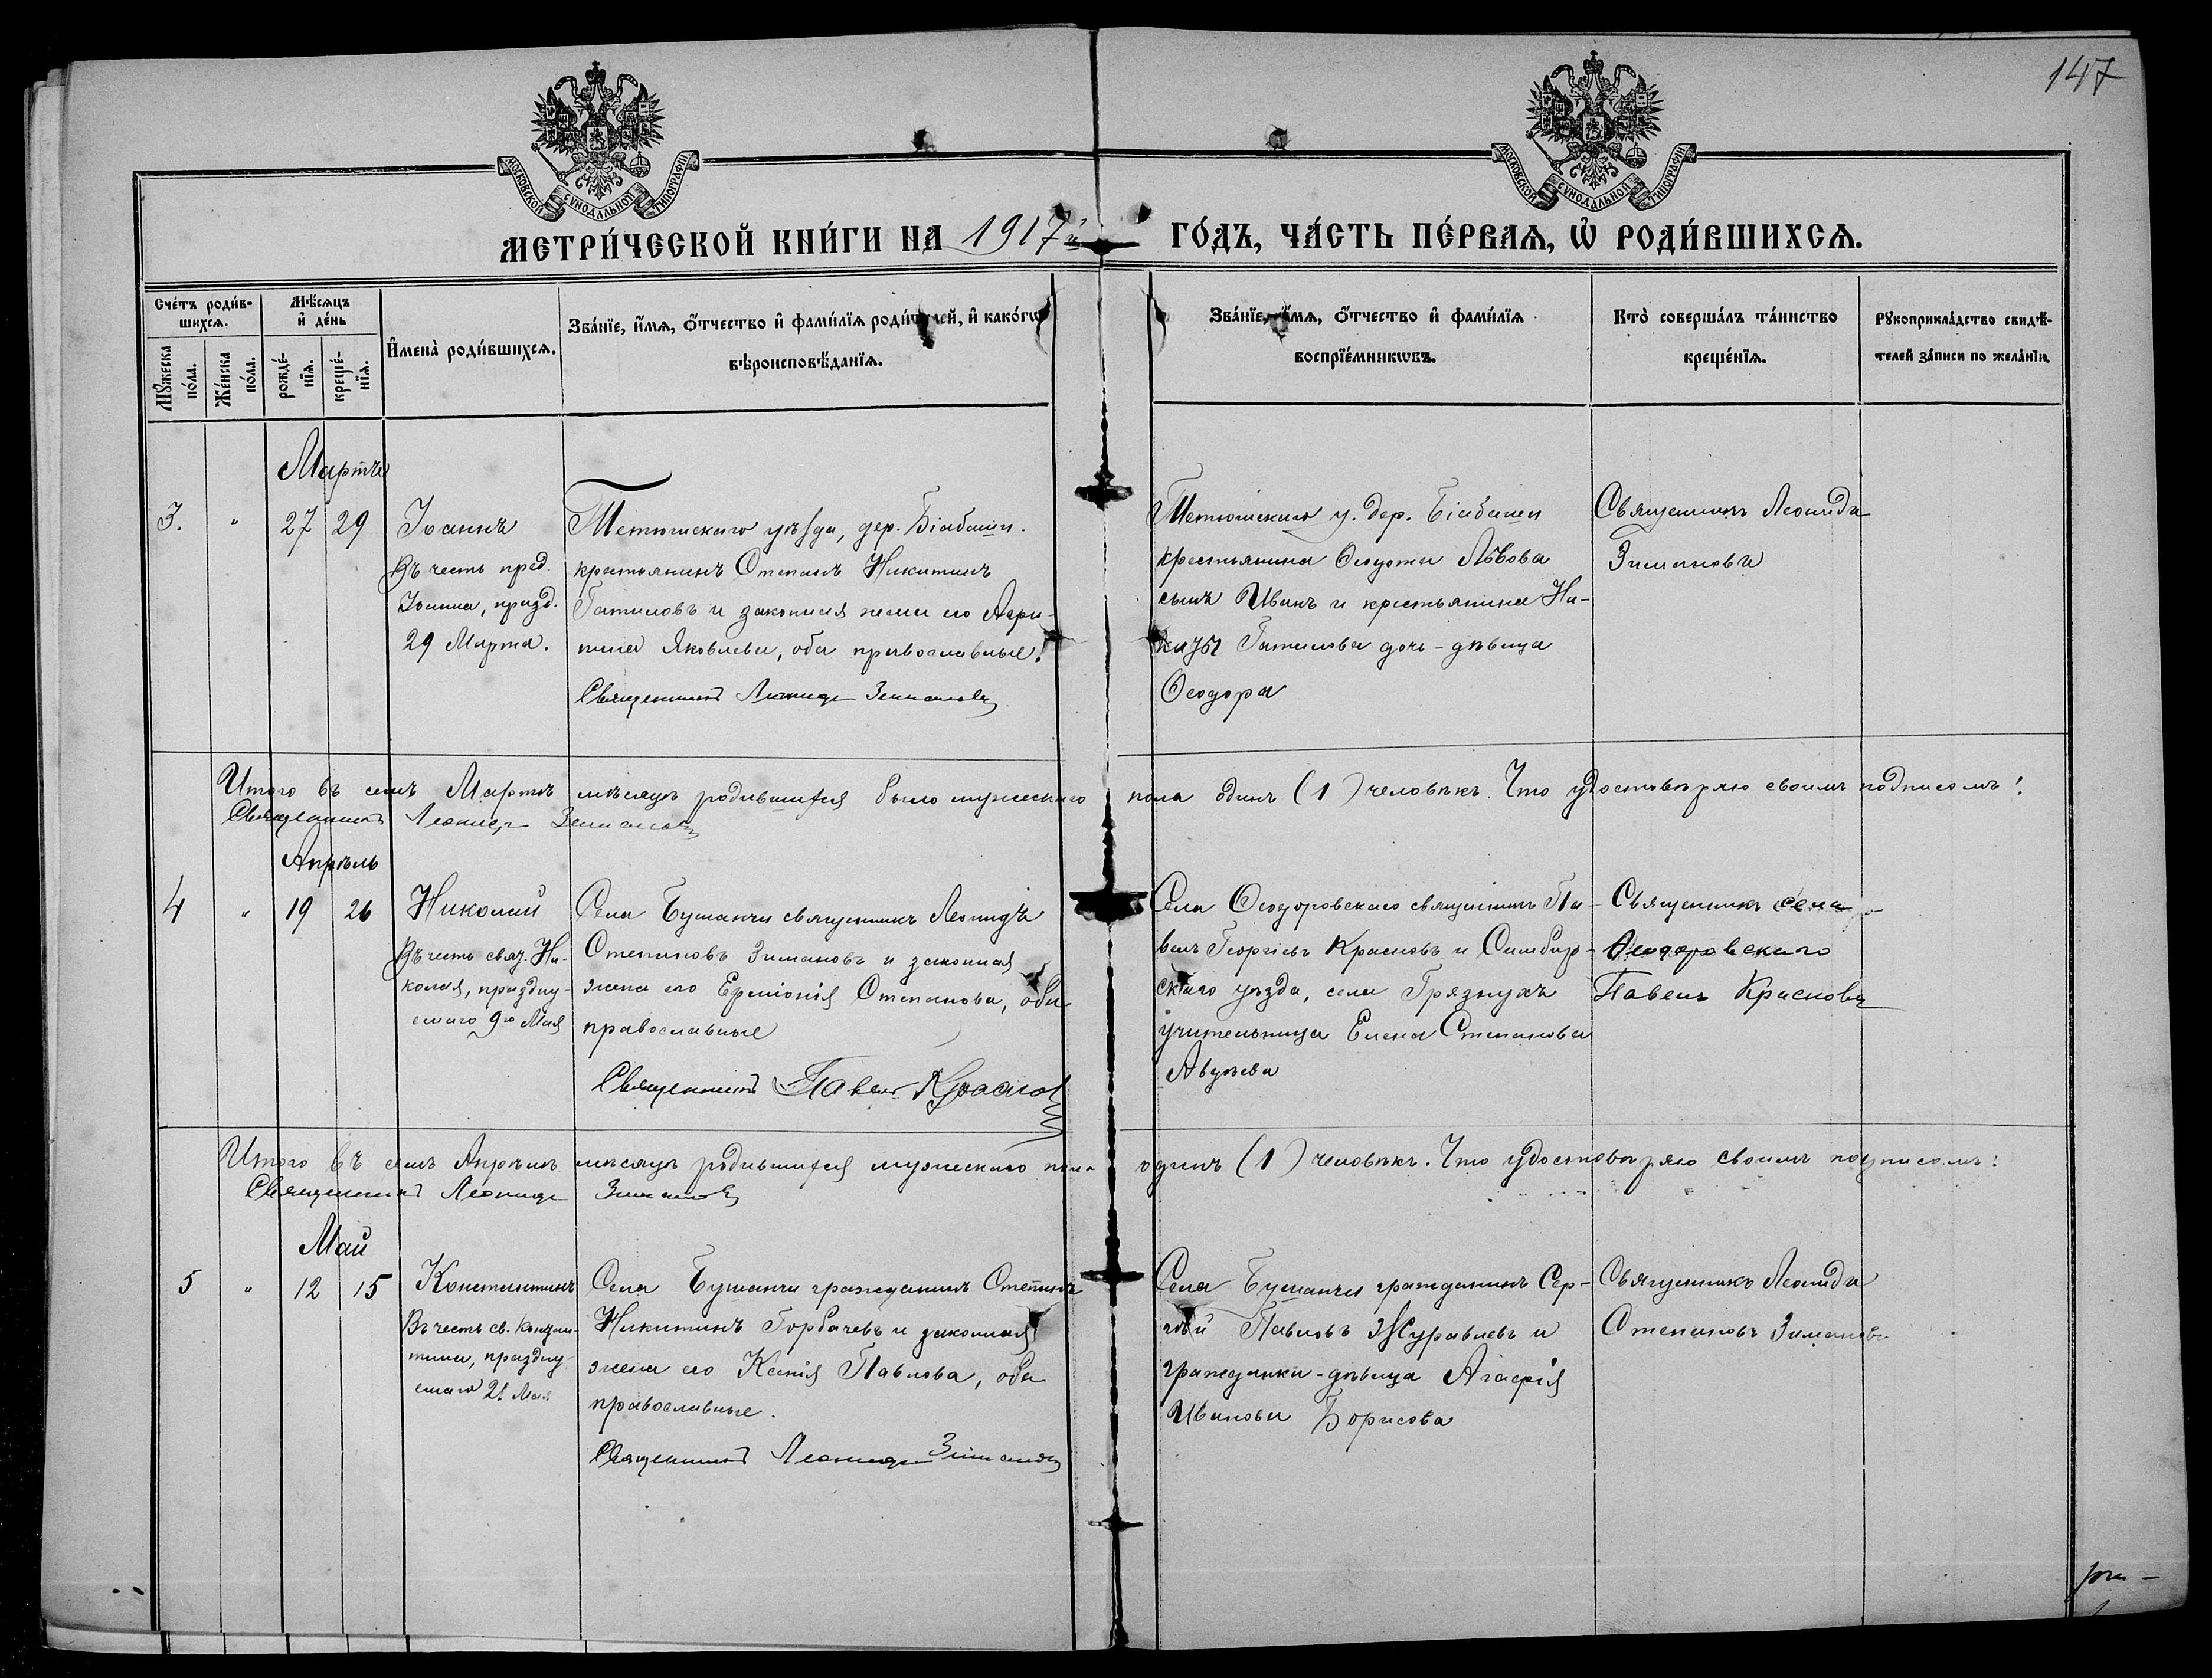 147
МОСКОВСКОЙ СѴНОДАЛЬНОЙ ТИПОГРАФІИ
МОСКОВСКОЙ СѴНОДАЛЬНОЙ ТИПОГРАФІИ
МЕТРИ́ЧЕСКОЙ КНИ́ГИ НА 1917й ГО́ДЪ, ЧА́СТЬ ПЕ́РВАЯ, Ѡ РОДИ́ВШИХСЯ.
Сче́тъ роди́в-
шихся.
Мꙋ́жеска
по́ла.
Же́нска
по́ла.
Мѣ́сяцъ
и҆ де́нь
рожде́-
нїя.
креще́-
нїя.
И҆мена̀ роди́вшихся.
Зва́нїе, и҆́мя, ѻ҆́тчество и҆ фами́лїя роди́телей, и҆ како́гѡ
вѣроисповѣ́данїя.
Зва́нїе, и҆́мя, ѻ҆́тчество и҆ фами́лїя
воспрїе́мникѡвъ.
Кто̀ соверша́лъ та́инство
креще́нїя.
Рꙋкоприкла́дство свидѣ́-
телей за́писи по жела́нїю.
Мартъ
3. " 27 29
Іоаннъ
Въ честь пред.
Іоанна, празд.
29 Марта.
Тетюшскаго уѣзда, дер. Біабаши.
крестьянинъ Степанъ Никитинъ
Гатиловъ и законная жена его Агри-
пина Яковлева, оба православные.
Священникъ Леонидъ Зимановъ
Тетюшскаго у. дер. Біабаши
крестьянина Ѳедота Львова
сынъ Иванъ и крестьянина Ни-
киты Гатилова дочь - дѣвица
Ѳеодора
Священникъ Леонидъ
Зимановъ
Итого въ семъ Мартѣ мѣсяцѣ родившихся было мужескаго пола одинъ (1) человѣкъ. Что удостовѣряю своимъ подписомъ:
Священникъ Леонидъ Зимановъ
Апрѣль
4 " 19 26
Николай
Въ честь свят. Ни-
колая, праздну-
емаго 9го Мая
Села Бушанчи священникъ Леонидъ
Степановъ Зимановъ и законная
жена его Ерміонія Степанова, оба
православные
Священникъ Павелъ Красновъ
Села Ѳеодоровскаго священникъ Па-
велъ Георгіевъ Красновъ и Симбир-
скаго уѣзда, села Грязнухъ
учительница Елена Степанова
Священникъ села
Ѳеодоровскаго
Павелъ Красновъ
Итого въ семъ Апрѣлѣ мѣсяцѣ родившихся мужескаго пола одинъ (1) человѣкъ. Что удостовѣряю своимъ подписомъ:
Священникъ Леонидъ Зимановъ
Май
5 " 12 15
Константинъ
Въ честь св. Констан-
тина, праздну-
емаго 21 Мая
Села Бушанчи гражданинъ Степанъ
Никитинъ Горбачевъ и законная
жена его Ксенія Павлова, оба
православные.
Священникъ Леонидъ Зимановъ
Села Бушанчи гражданинъ Сер-
гѣй Павловъ Журавлевъ и
гражданка - дѣвица Агафія
Иванова Борисова
Священникъ Леонидъ
Степановъ Зимановъ